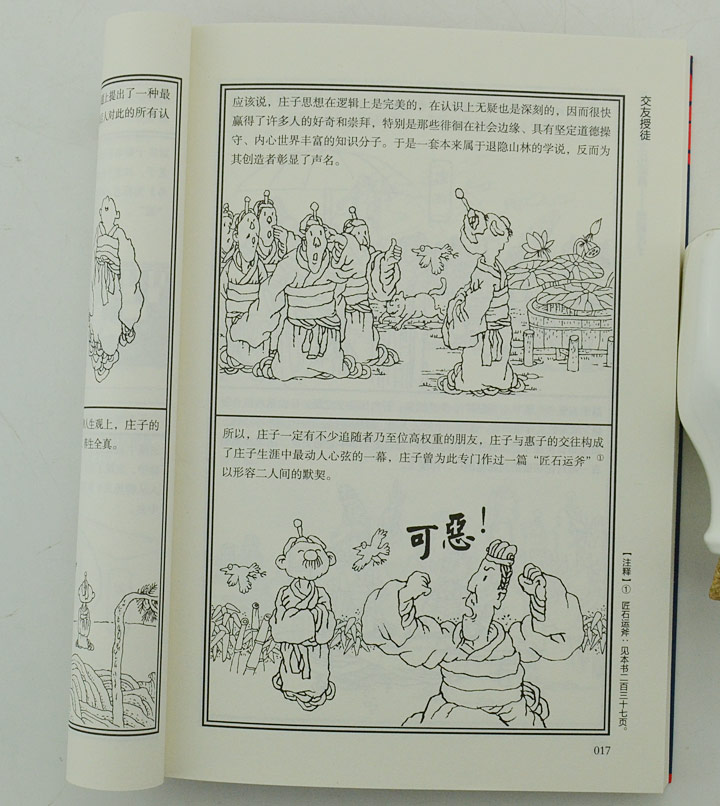 上提出了一种最
人对此的所有认
人生观上，庄子的
养生全真。
交友授徒
应该说，庄子思想在逻辑上是完美的，在认识上无疑也是深刻的，因而很快
赢得了许多人的好奇和崇拜，特别是那些徘徊在社会边缘、具有坚定道德操
守、内心世界丰富的知识分子。于是一套本来属于退隐山林的学说，反而为
其创造者彰显了声名。
所以，庄子一定有不少追随者乃至位高权重的朋友，庄子与惠子的交往构成
了庄子生涯中最动人心弦的一幕，庄子曾为此专门作过一篇“匠石运斧”①
以形容二人间的默契。
可惡！
【注释】① 匠石运斧：见本书二百三十七页。
017